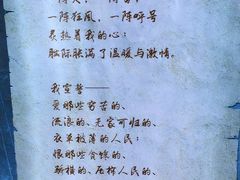 一阵狂風，一阵呼号
炙热着我的心；
胸际胀满了温暖与激情。
我宣誓——
爱那些穷苦的、
流浪的、无家可归的、
衣单被薄的人民；
恨那些贪馋的、
骄横的、压榨人民的、